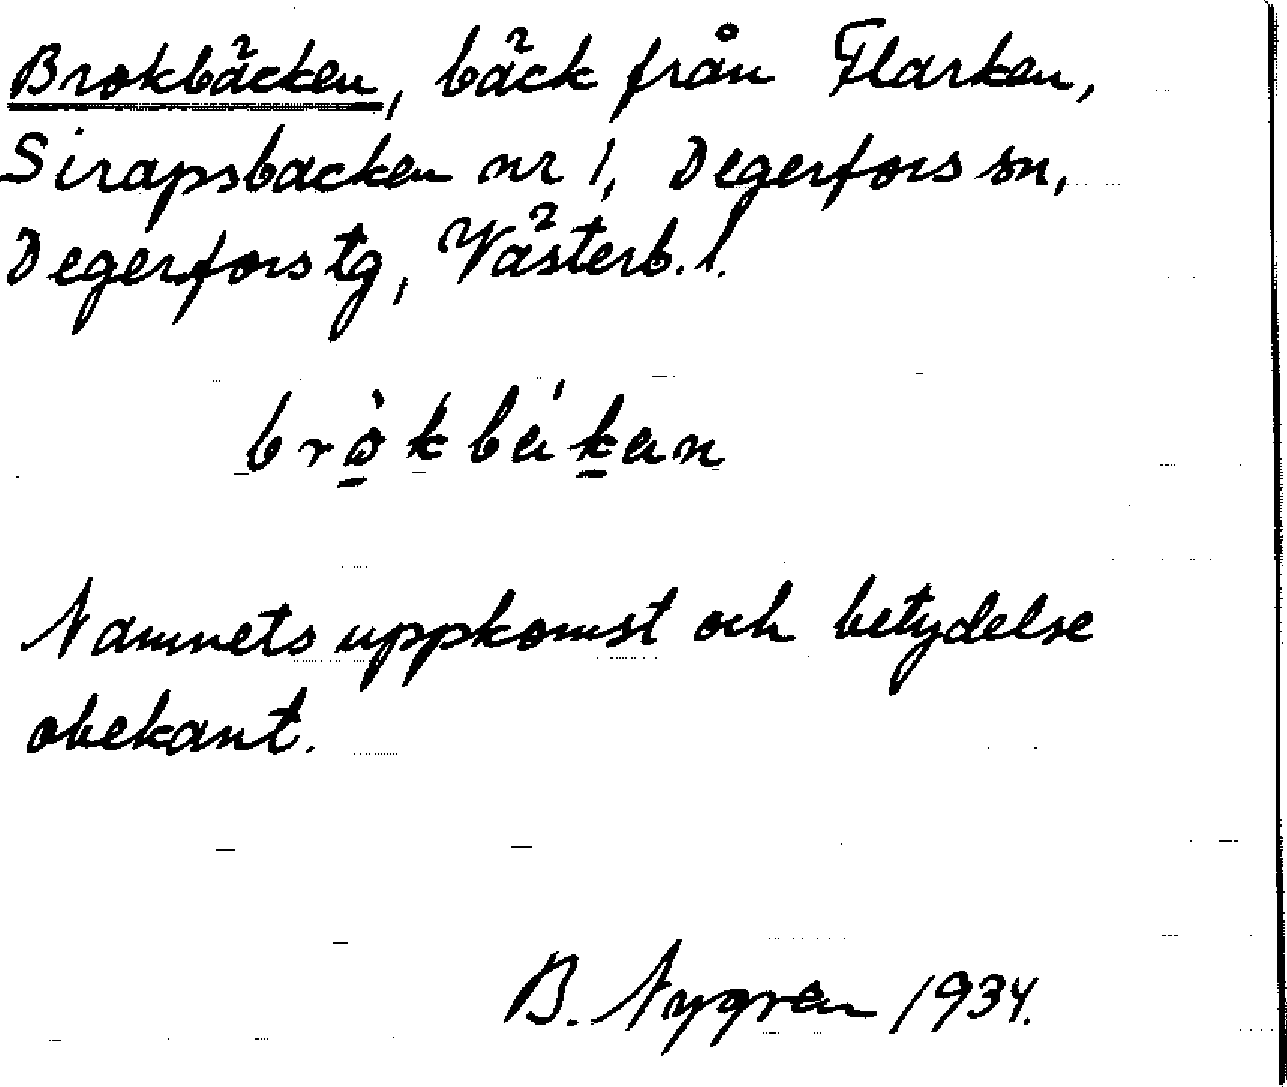 Brokbäcken, bäck från Flarken,
Sirapsbacken nr 1, Degerfors sn,
Degerfors tg, Västerb. l.
Namnets uppkomst och betydelse
obekant.
B. Nygren 1934.